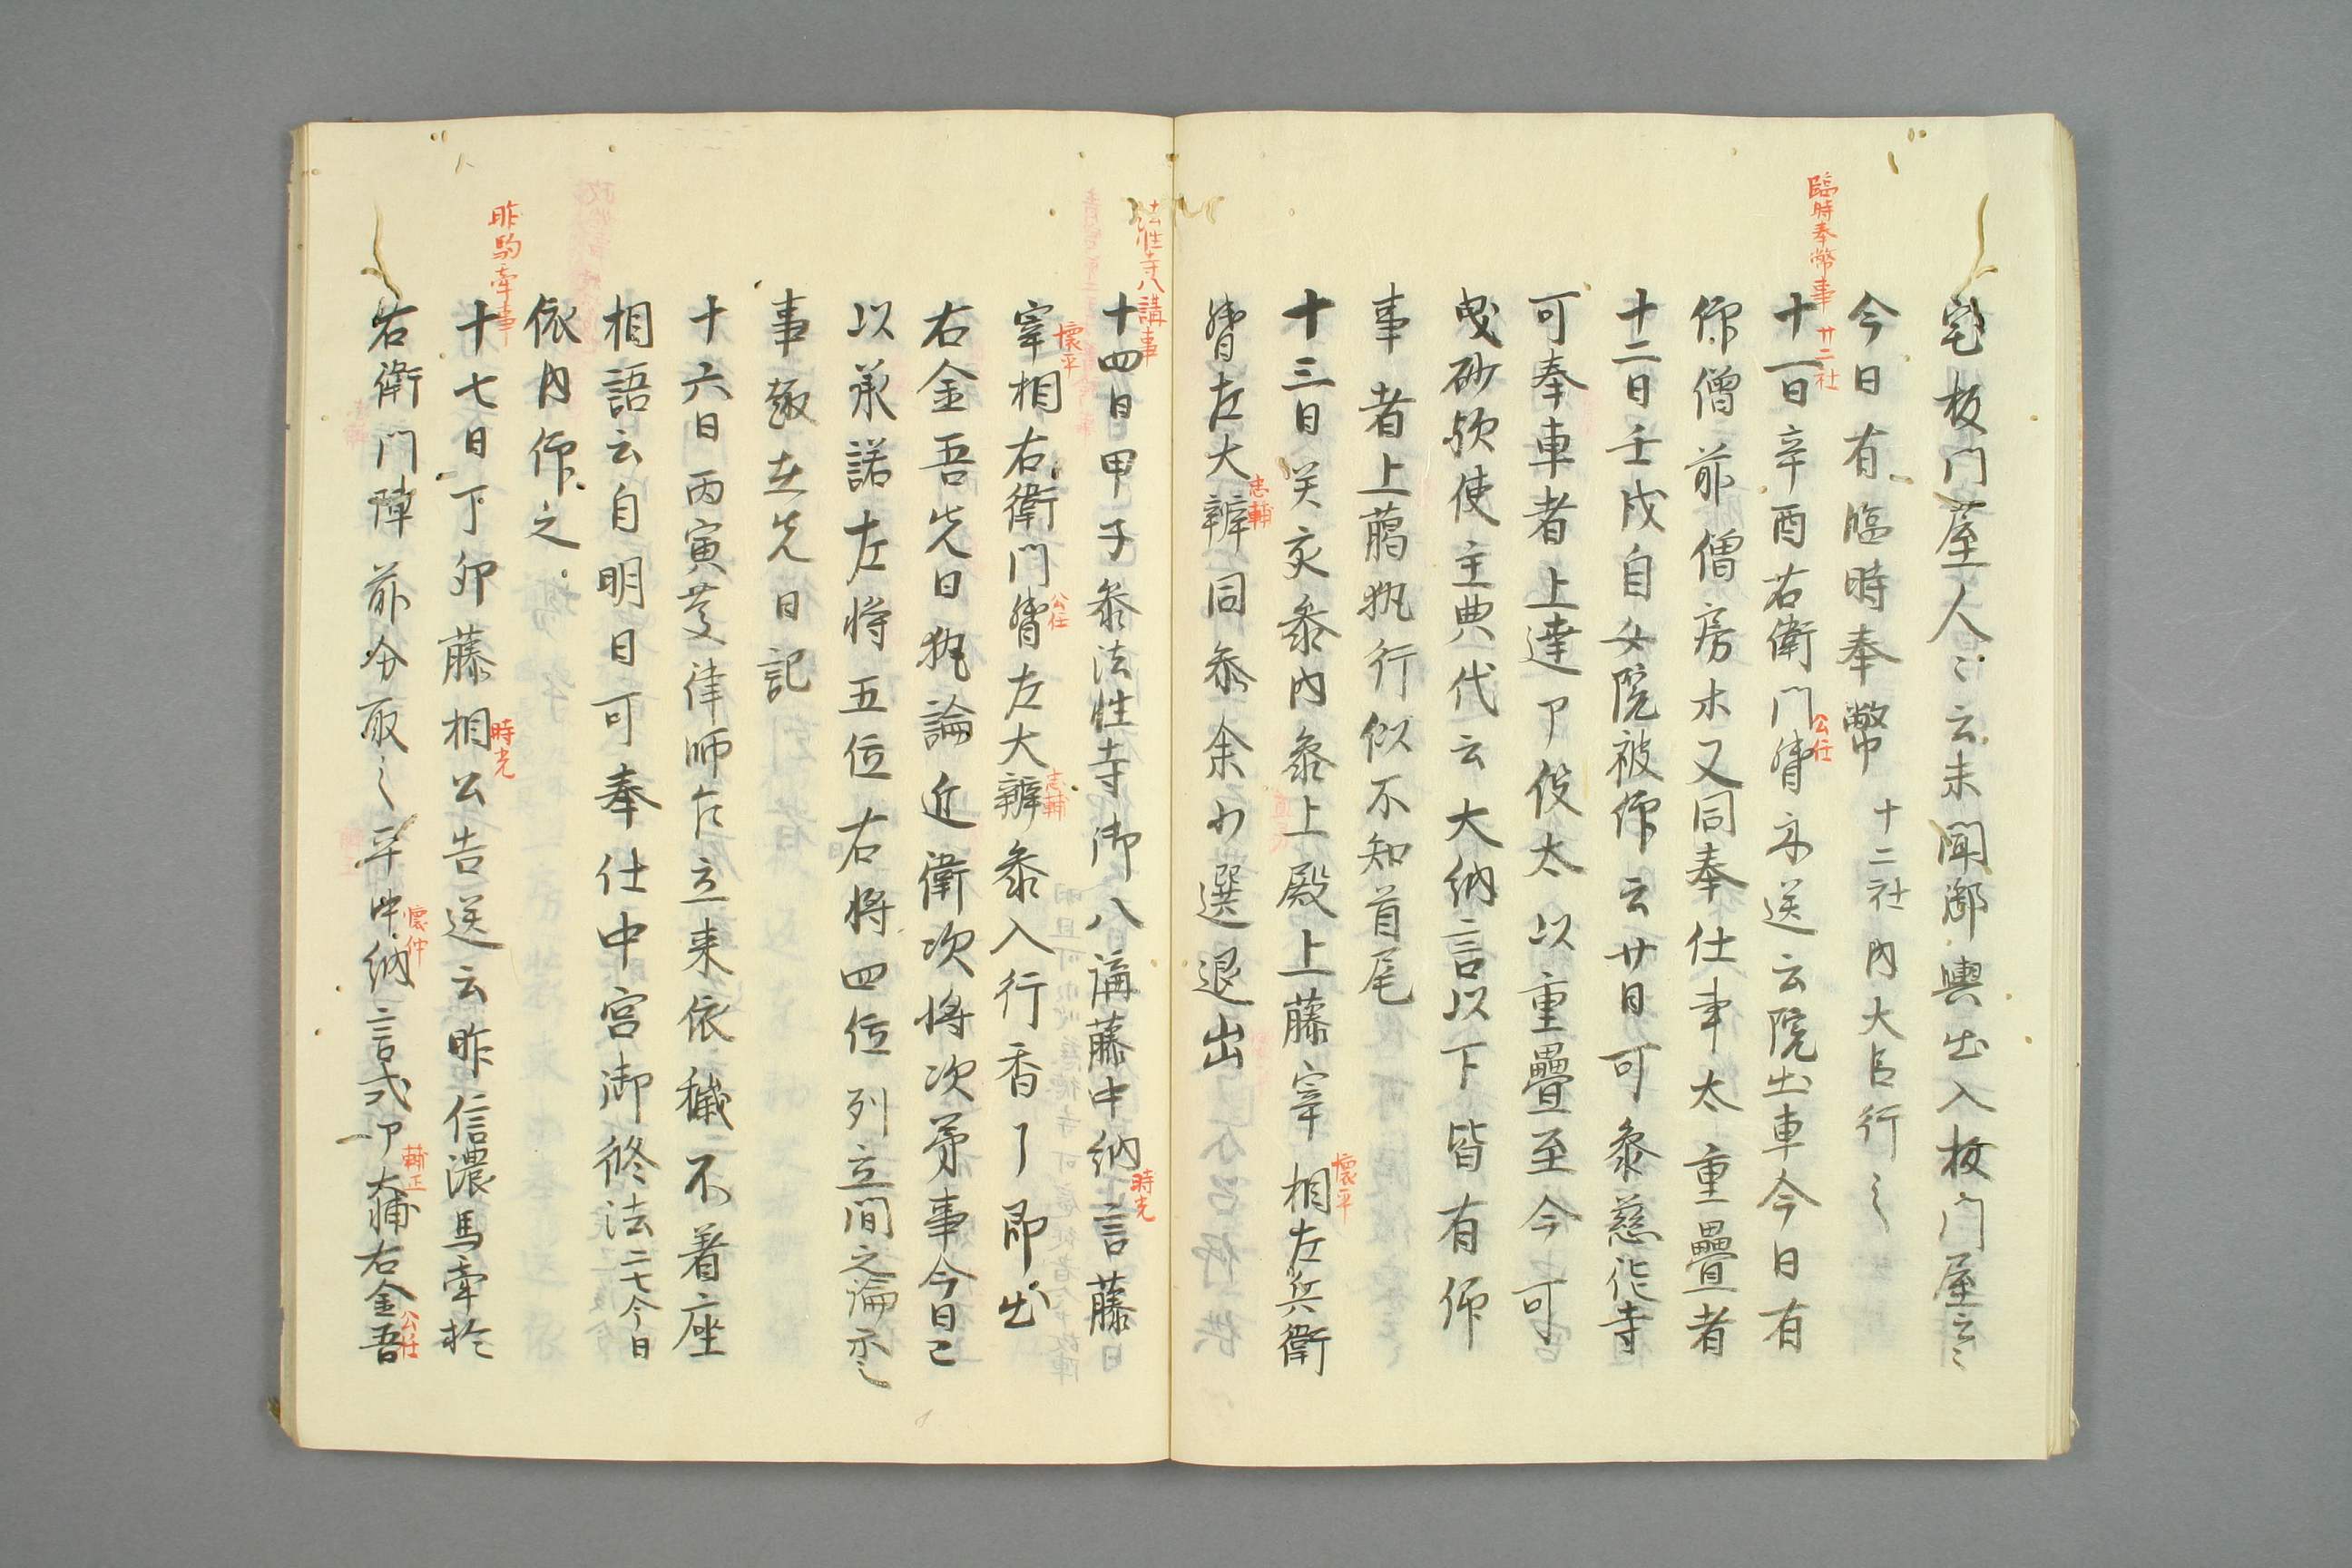 宅板門屋人々云未聞御輿出入板門屋云々
臨時奉幣事 廿二社
今日有臨時奉幣 十二社内大臣行之
十一日辛酉右衛門督示送云院出車今日有
公任
仰僧前僧房木又同奉仕事太重疊者
十二日壬戌自女院被仰云廿日可参慈徳寺
可奉車者上達卩役太以重疊至今可
曵砂欤使主典代云大納言以下皆有仰
事者上萠執行似不知首尾
十三日癸亥参内参上殿上藤宰相左兵衛
懐平
督左大辨同参余少選退出
忠輔
法性寺八講事
十四日甲子参法性寺御八講藤中納言藤
時光
宰相右衛門督左大辨参入行香了即出
懐平
公任
忠輔
右金吾先日執論近衛次将次第事今日已
以承諾左将五位右将四位列立間之論忝之
事趣在先日記
十六日丙寅慶律師乍立来依穢不着座
相語云自明日可奉仕中宮御修法二七今日
依内仰之
昨駒牽事
十七日丁卯藤相公告送云昨信濃馬牽於
時光
右衛門陣前分取之平中納言式卩大輔右金吾
懐仲
輔正
公任